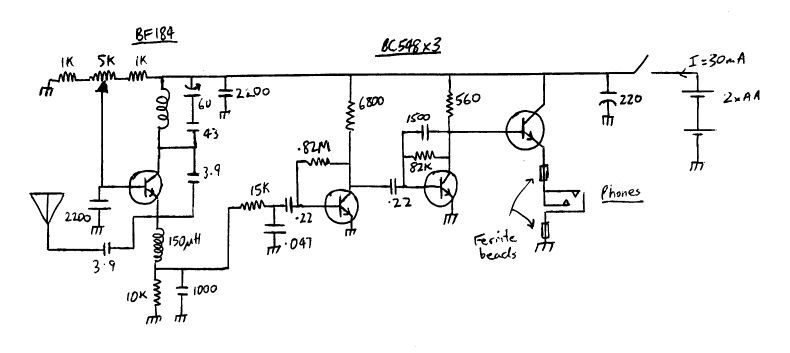 BF184
BC548x3
1K
5K
1K
60
2200
43
3.9
2200
3.9
150µH
10K
1000
15K
.047
.22
.82M
6800
.22
1500
82K
560
220
I=30mA
2xAA
Phones
Ferrite
beads